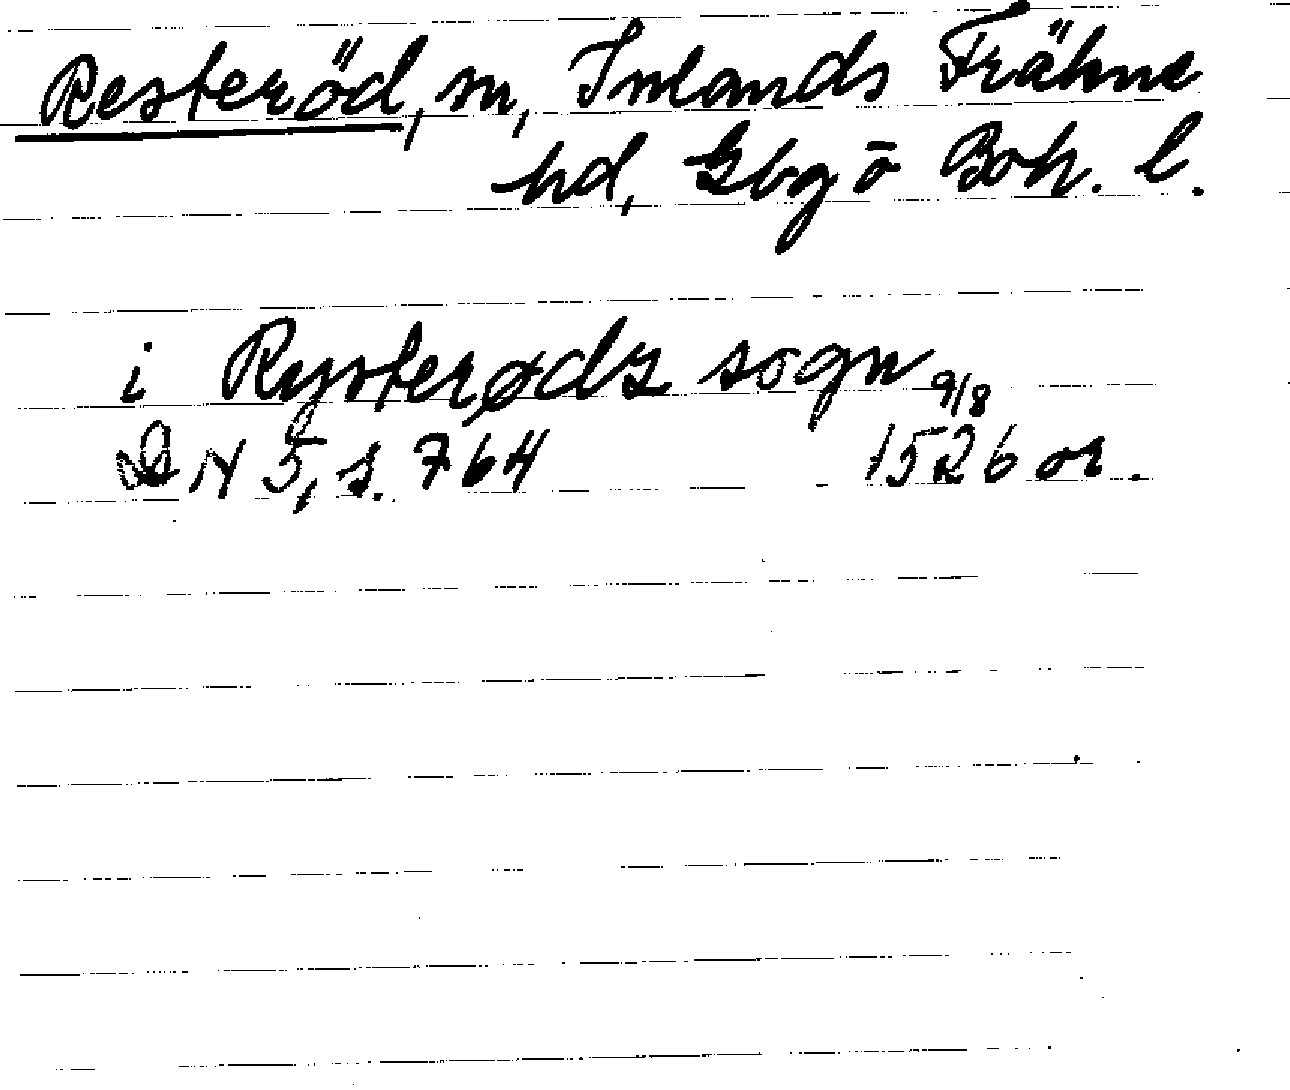 Resteröd, sn, Inlands Fräkne
hd, Gbg o Boh. l.
i Rysterødz sogn 9/8
DN 5, s. 764 1526 or.